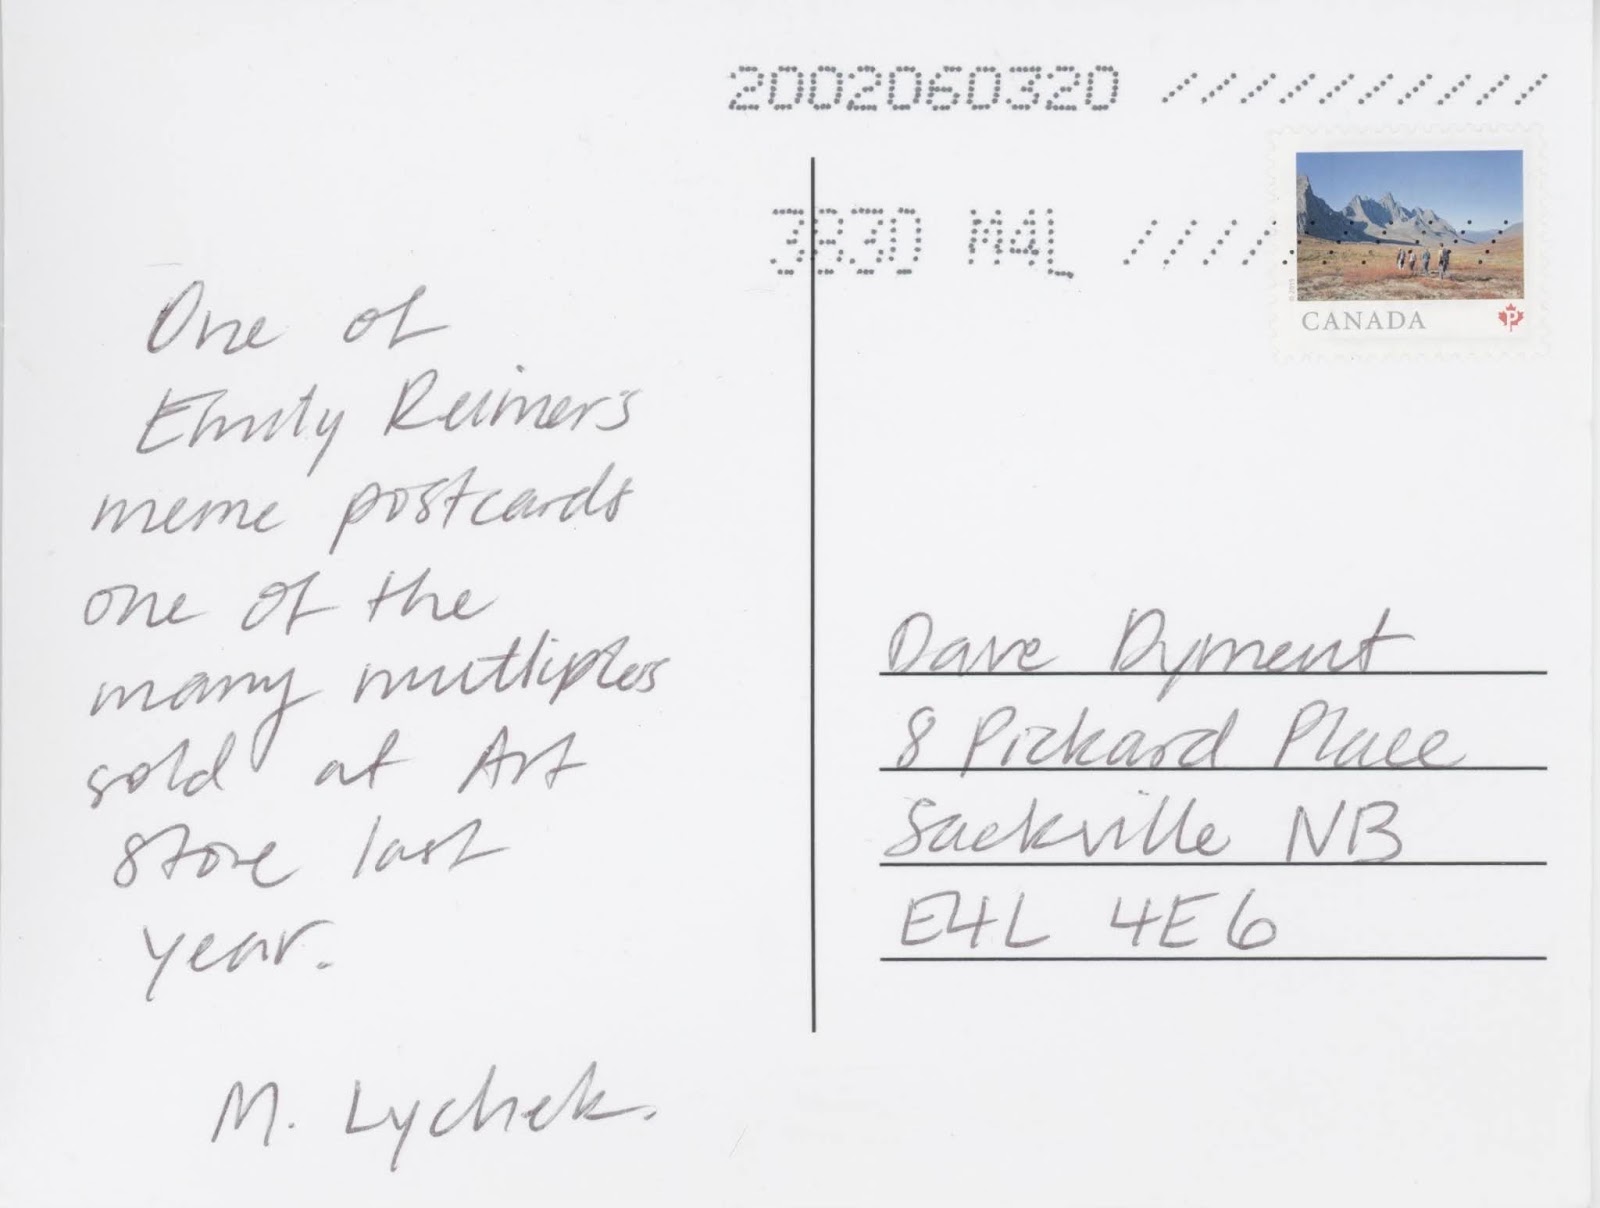 2002060320 ///////////
3830 M4L ////
CANADA
P
One of
Emily Reimer's
meme postcards
one of the
many mutliples
sold at Art
store last
year.
M. Lychek.
Dave Dyment
8 Pickard Place
Sackville NB
E4L 4E6